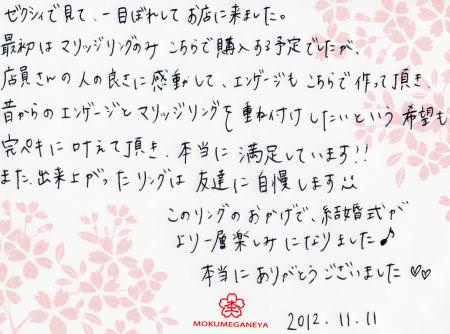 ゼクシィで見て、一目ぼれしてお店に来ました。
最初はマリッジリングのみこちらで購入する予定でしたが、
店員さんの人の良さに感動して、エンゲージもこちらで作って頂き、
昔からのエンゲージとマリッジリングを重ね付けしたいという希望も
完ペキに叶えて頂き、本当に満足しています!!
また、出来上がったリングは友達に自慢します
このリングのおかげで、結婚式が
より一層楽しみになりました♪
本当にありがとうございました♡♡
MOKUMEGANEYA
2012.11.11